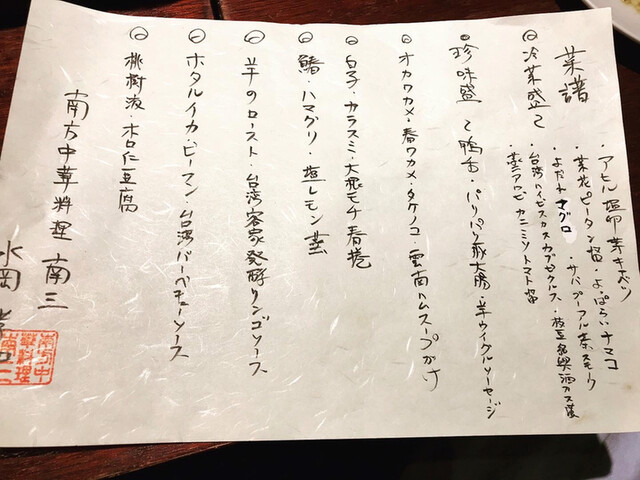 菜譜
・アヒル塩卵芽キャベツ
・菜花ピータン
・よっぱらいナマコ
・よだれマグロ
・サバプーアル茶スモーク
・台湾ハイビスカスカプレーゼ
・枝豆紹興酒カス
・蒸アワビカニミソトマト
冷菜盛て
珍味盛て鴨舌・パリパリ豚大腸・羊ウイグルソーセージ
オカワカメ・春ワカメ・タケノコ・雲南ハムスープがけ
白子・カラスミ・大根モチ春捲
鰆・ハマグリ・塩レモン蒸
羊のロースト・台湾客家発酵リンゴソース
ホタルイカ・ピーマン・台湾バーベキューソース
桃樹液・杏仁豆腐
南方中華料理 南三
水岡
南方中
華料理
南三